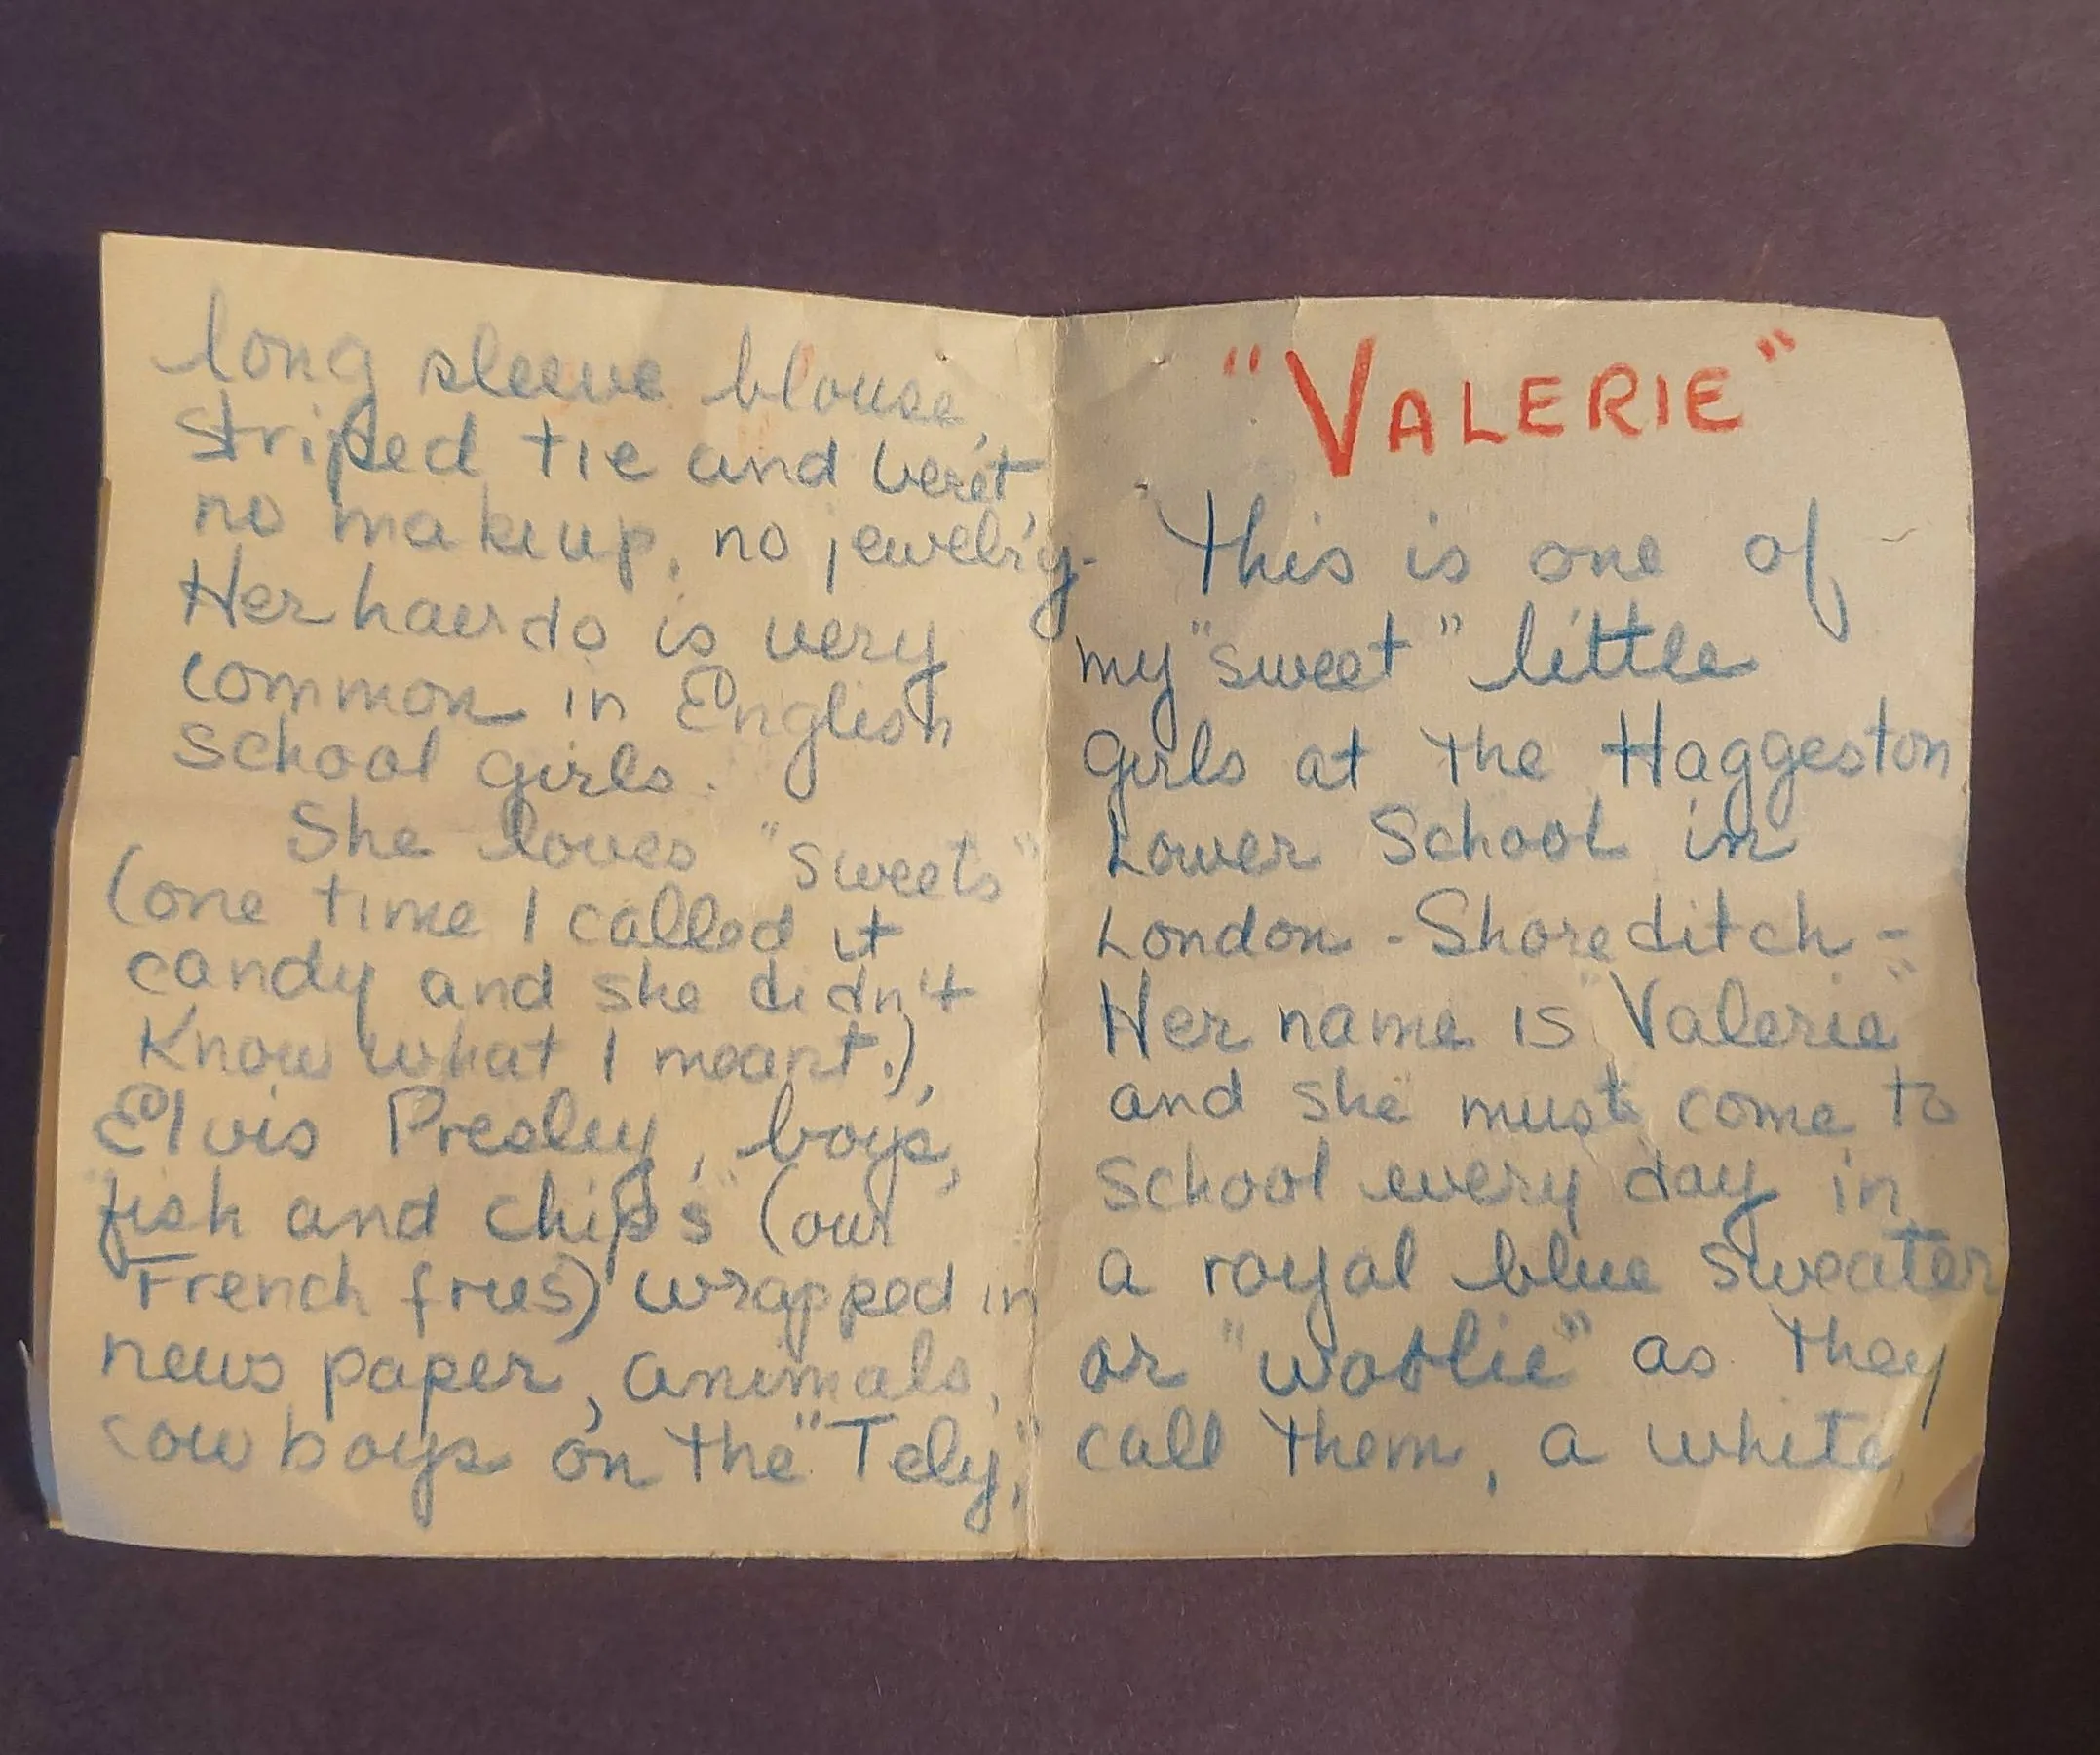 "VALERIE"
This is one of
my "sweet" little
girls at the Haggeston
Lower School in
London - Shoreditch -
Her name is "Valerie"
and she must come to
school every day in
a royal blue sweater
or "woolie" as they
call them, a white
long sleeve blouse,
striped tie and beret
no makeup, no jewelry.
Her hairdo is very
common in English
school girls.
She loves "sweets"
(one time I called it
candy and she didn't
know what I meant.),
Elvis Presley, boys,
"fish and chips" (our
French fries) wrapped in
news paper, animals,
cowboys on the "Tely",